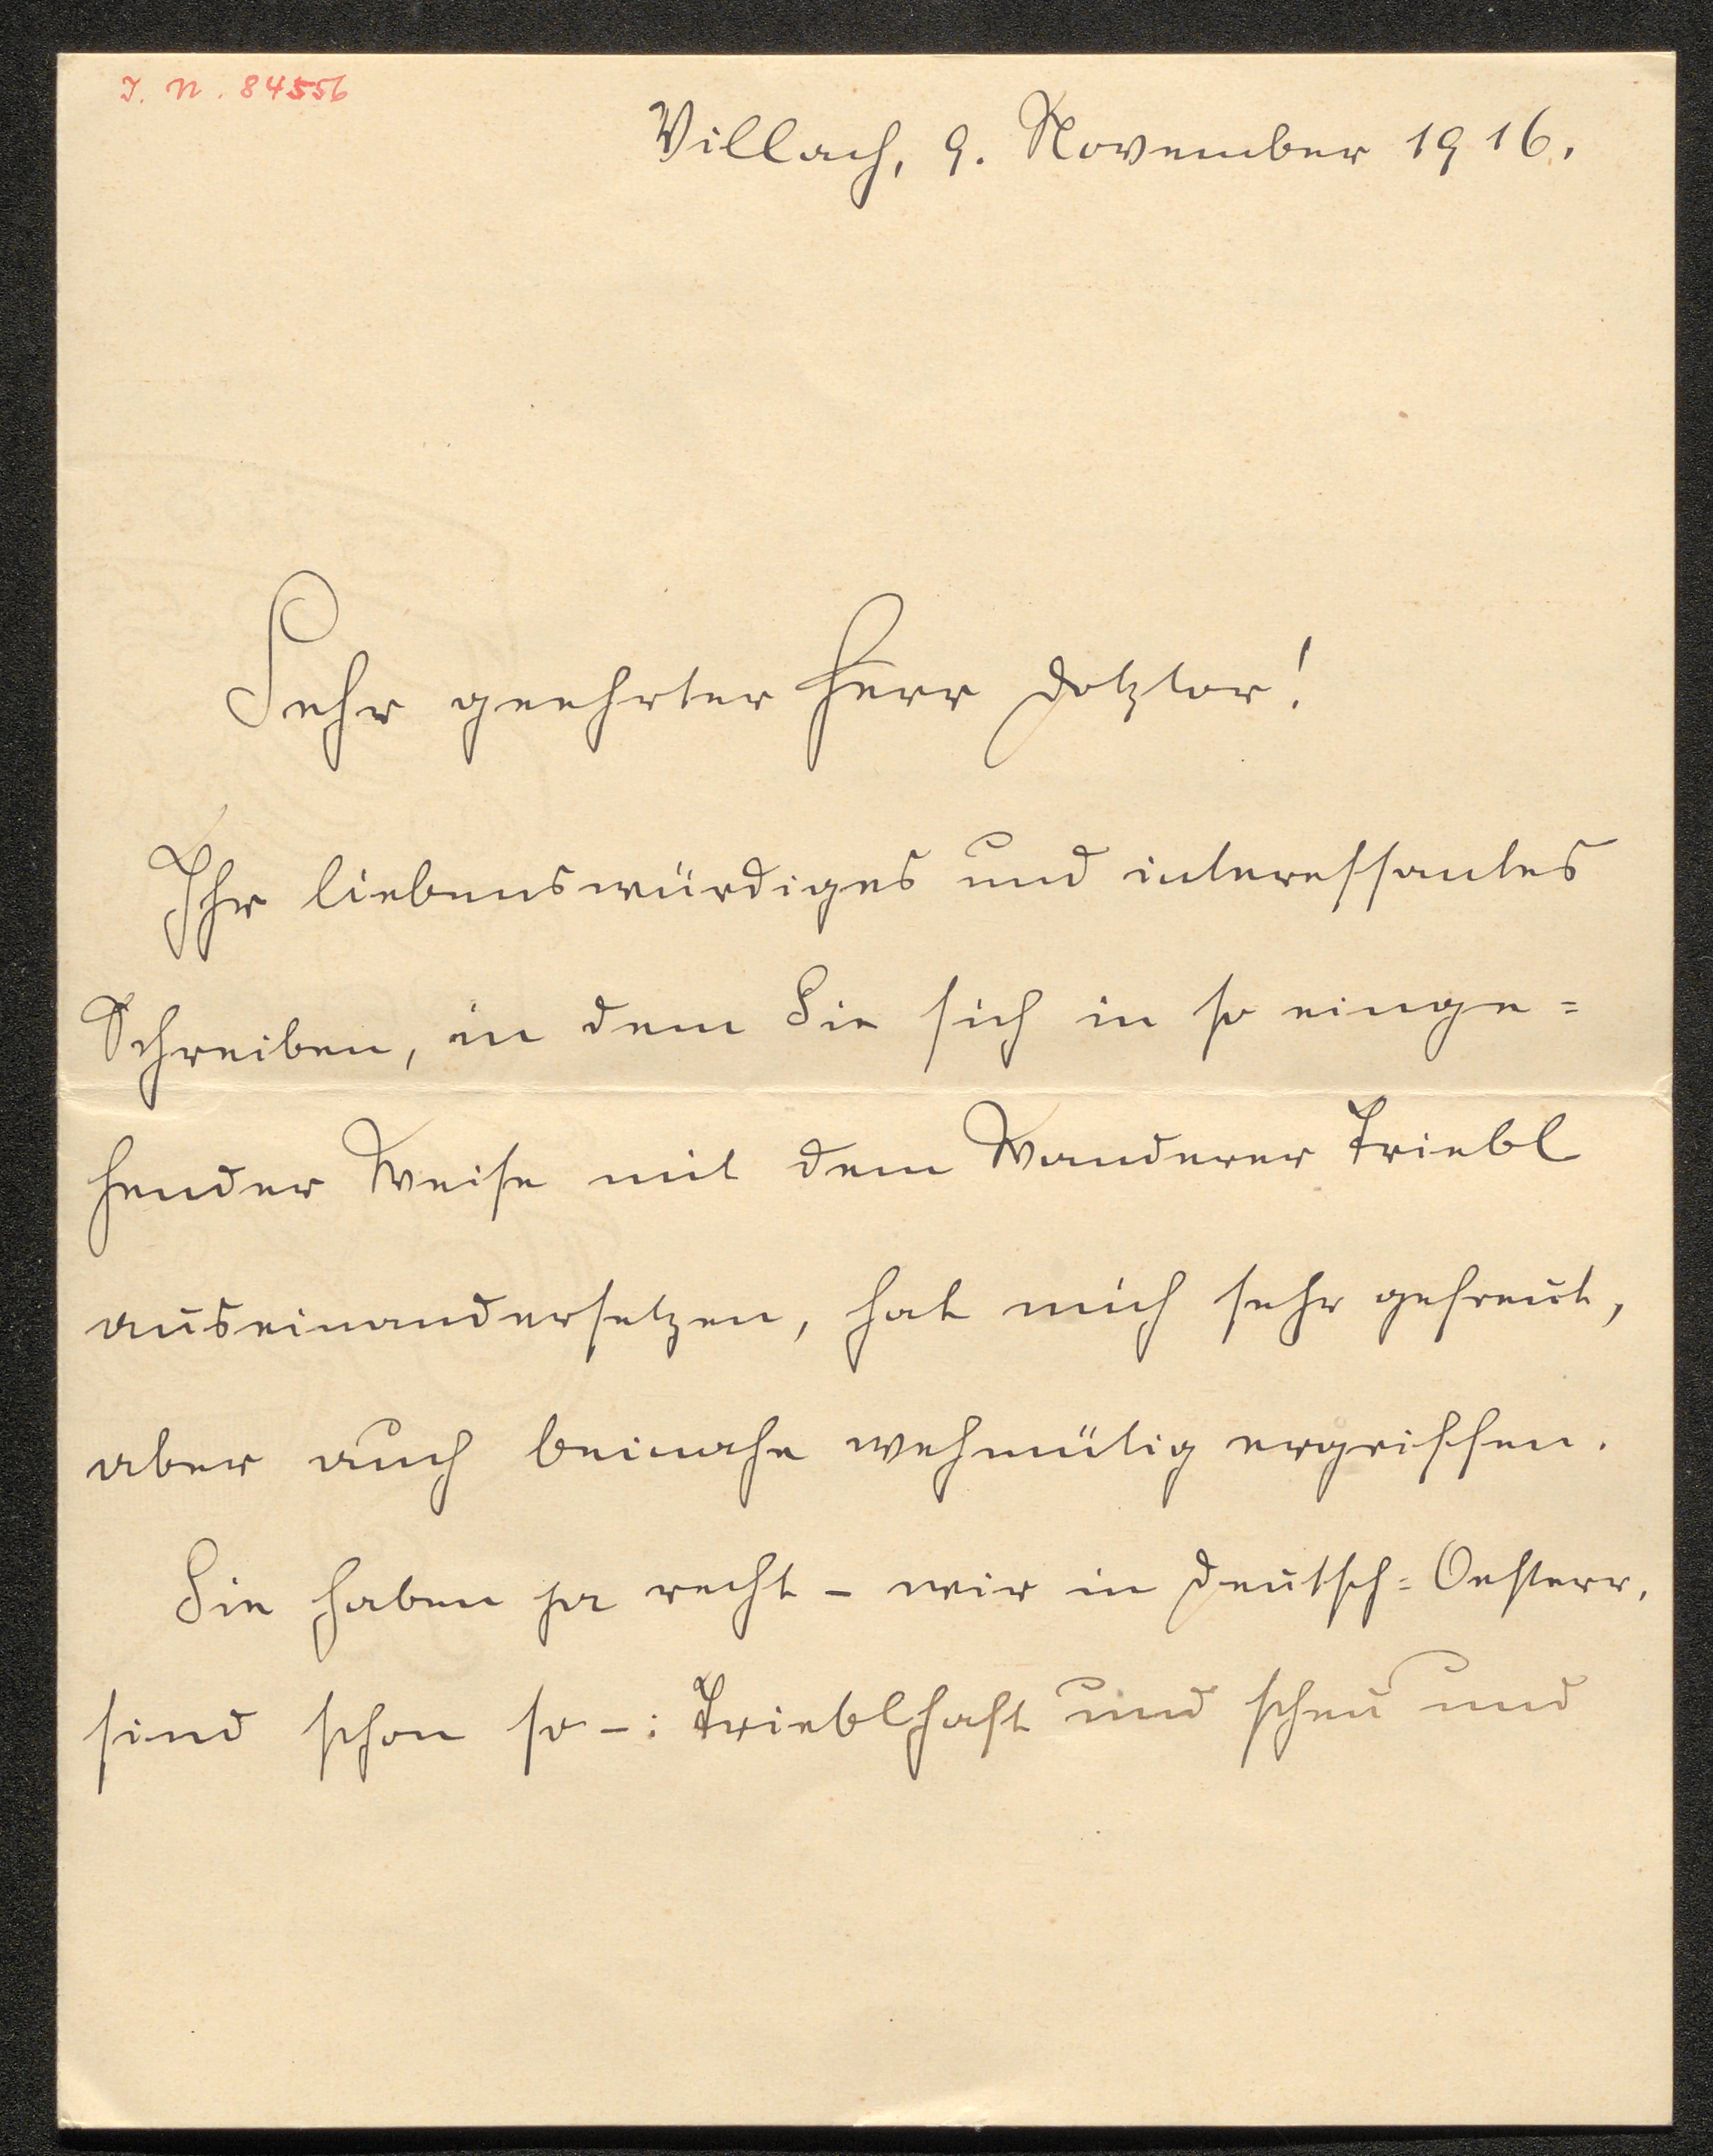 I. N. 84556
Villach, 9. November 1916.
Sehr geehrter Herr Doktor!
Ihr liebenswürdiges und interessantes
Schreiben, in dem Sie sich in so einge=
hender Weise mit dem Wanderer Triebl
auseinandersetzen, hat mich sehr gefreut,
aber auch beinahe wehmütig ergriffen.
Sie haben ja recht – wir in Deutsch=Oesterr.
sind schon so –: Trieblhaft und scheu und